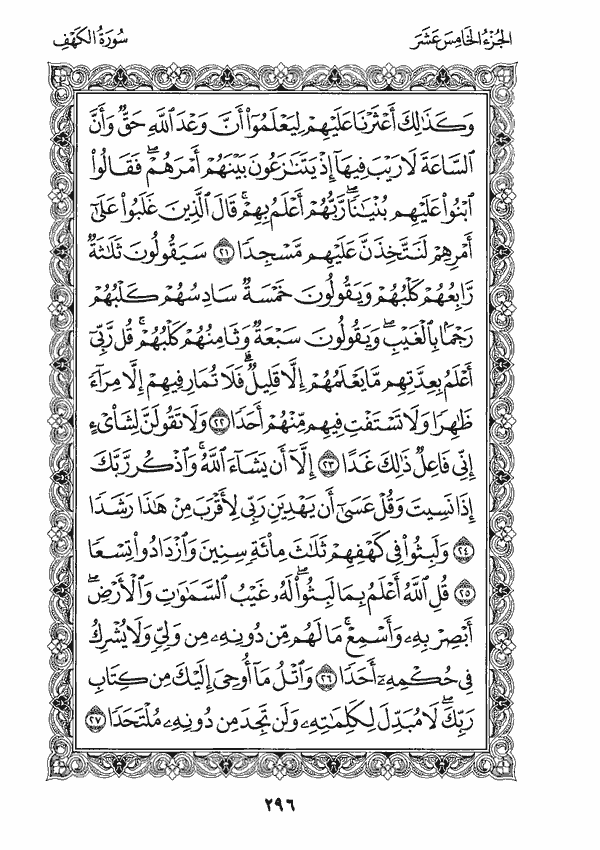 الجُزْءُ الخَامِسَ عَشَرَ
سُورَةُ الكَهْفِ
وَكَذَٰلِكَ أَعْثَرْنَا عَلَيْهِمْ لِيَعْلَمُوٓا۟ أَنَّ وَعْدَ ٱللَّهِ حَقٌّ وَأَنَّ
ٱلسَّاعَةَ لَا رَيْبَ فِيهَآ إِذْ يَتَنَـٰزَعُونَ بَيْنَهُمْ أَمْرَهُمْ ۖ فَقَالُوا۟
ٱبْنُوا۟ عَلَيْهِم بُنْيَـٰنًا ۖ رَّبُّهُمْ أَعْلَمُ بِهِمْ ۚ قَالَ ٱلَّذِينَ غَلَبُوا۟ عَلَىٰٓ
أَمْرِهِمْ لَنَتَّخِذَنَّ عَلَيْهِم مَّسْجِدًا ٢١ سَيَقُولُونَ ثَلَـٰثَةٌ
رَّابِعُهُمْ كَلْبُهُمْ وَيَقُولُونَ خَمْسَةٌ سَادِسُهُمْ كَلْبُهُمْ
رَجْمًۢا بِٱلْغَيْبِ ۖ وَيَقُولُونَ سَبْعَةٌ وَثَامِنُهُمْ كَلْبُهُمْ ۚ قُل رَّبِّىٓ
أَعْلَمُ بِعِدَّتِهِم مَّا يَعْلَمُهُمْ إِلَّا قَلِيلٌ ۗ فَلَا تُمَارِ فِيهِمْ إِلَّا مِرَآءً
ظَـٰهِرًا وَلَا تَسْتَفْتِ فِيهِم مِّنْهُمْ أَحَدًا ٢٢ وَلَا تَقُولَنَّ لِشَا۟ىْءٍ
إِنِّى فَاعِلٌ ذَٰلِكَ غَدًا ٢٣ إِلَّآ أَن يَشَآءَ ٱللَّهُ ۚ وَٱذْكُر رَّبَّكَ
إِذَا نَسِيتَ وَقُلْ عَسَىٰٓ أَن يَهْدِيَنِ رَبِّى لِأَقْرَبَ مِنْ هَـٰذَا رَشَدًا
٢٤ وَلَبِثُوا۟ فِى كَهْفِهِمْ ثَلَـٰثَ مِا۟ئَةٍ سِنِينَ وَٱزْدَادُوا۟ تِسْعًا
٢٥ قُلِ ٱللَّهُ أَعْلَمُ بِمَا لَبِثُوا۟ ۖ لَهُۥ غَيْبُ ٱلسَّمَـٰوَٰتِ وَٱلْأَرْضِ ۖ
أَبْصِرْ بِهِۦ وَأَسْمِعْ ۚ مَا لَهُم مِّن دُونِهِۦ مِن وَلِىٍّ وَلَا يُشْرِكُ
فِى حُكْمِهِۦٓ أَحَدًا ٢٦ وَٱتْلُ مَآ أُوحِىَ إِلَيْكَ مِن كِتَابِ
رَبِّكَ ۖ لَا مُبَدِّلَ لِكَلِمَـٰتِهِۦ وَلَن تَجِدَ مِن دُونِهِۦ مُلْتَحَدًا ٢٧
٢٩٦